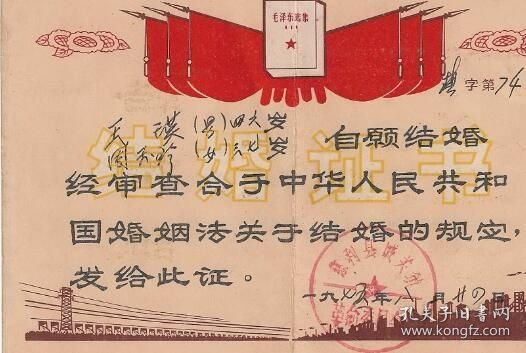 毛泽东选集
字第74
王瑛(男)四六岁
(女)三七岁
自愿结婚
结婚证书
经审查合于中华人民共和
国婚姻法关于结婚的规定，
发给此证。
一九七五年八月廿四日
孔夫子旧书网
www.kongfz.com